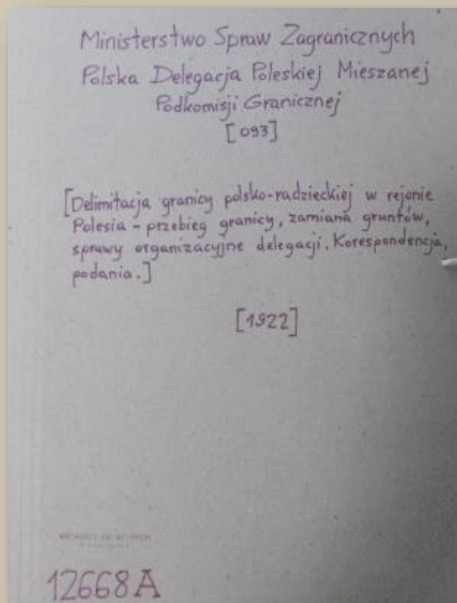 Ministerstwo Spraw Zagranicznych
Polska Delegacja Poleskiej Mieszanej
Podkomisji Granicznej
[093]
[Delimitacja granicy polsko-radzieckiej w rejonie
Polesia - przebieg granicy, zamiana gruntów,
sprawy organizacyjne delegacji. Korespondencja,
podania.]
[1922]
12668A